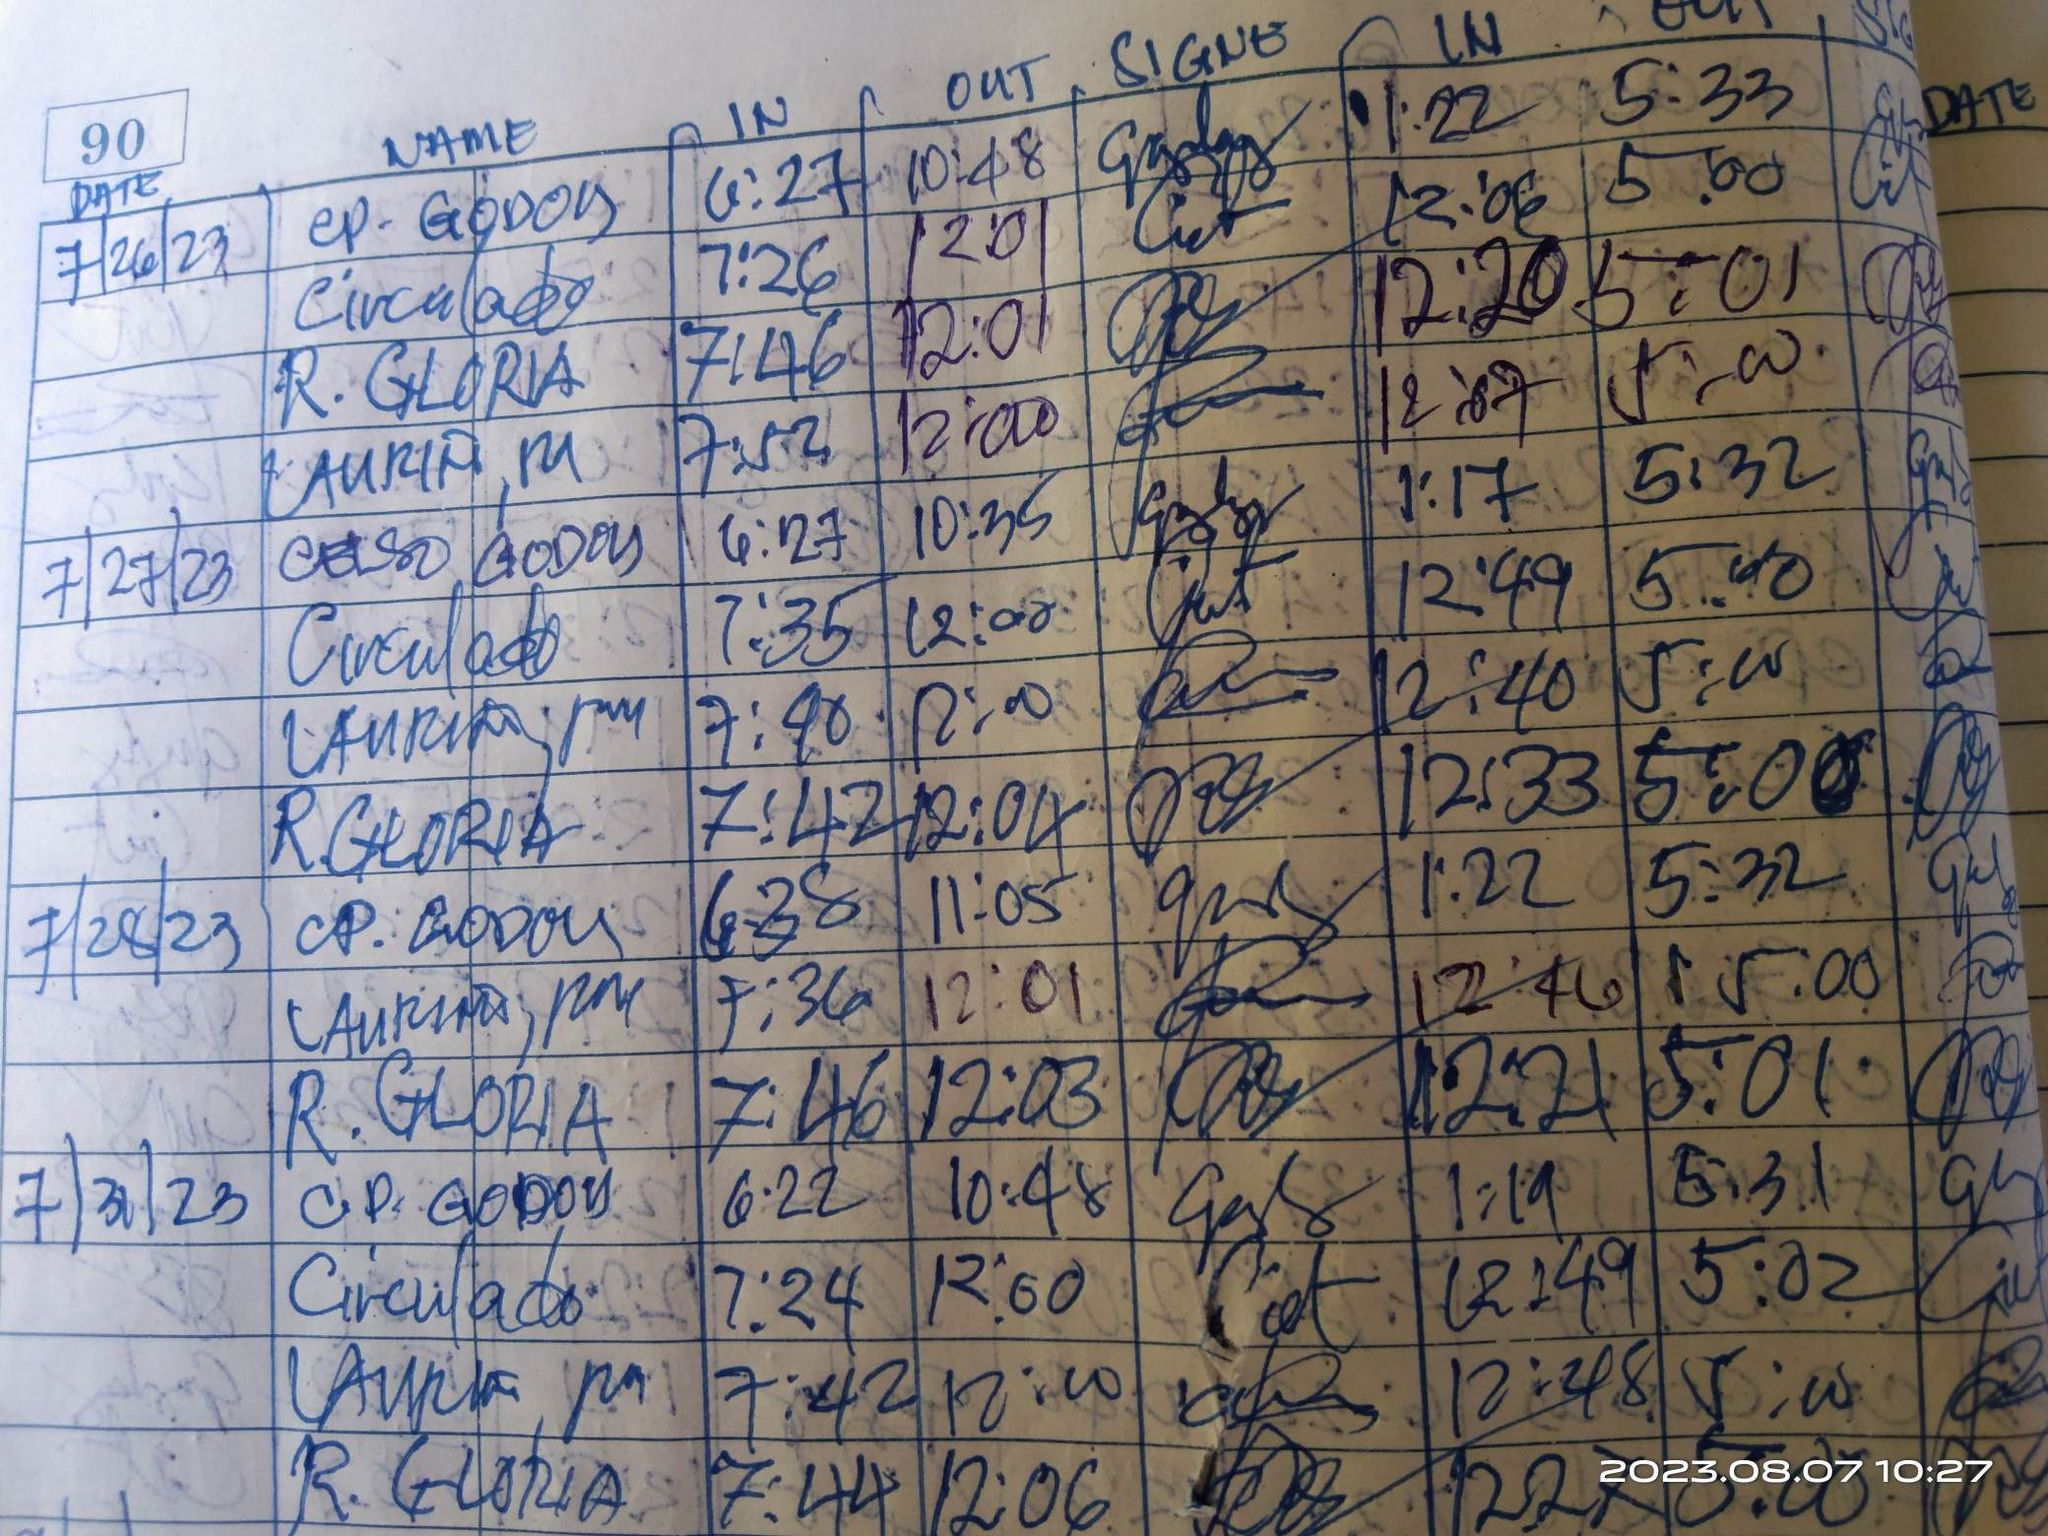 90
DATE NAME IN OUT SIGNE IN OUT DATE
7/26/23 CP. GODOY 6:27 10:48 1:22 5:33
Circulado 7:26 12:01 12:06 5:00
R. GLORIA 7:46 12:01 12:20 5:01
LAURITA, PM 7:52 12:00 12:07 5:00
7/27/23 CELSO GODOY 6:27 10:35 1:17 5:32
Circulado 7:35 12:00 12:49 5:00
LAURITA, PM 7:40 12:00 12:40 5:00
R. GLORIA 7:42 12:04 12:33 5:00
7/28/23 CP. GODOY 6:38 11:05 1:22 5:32
LAURITA, PM 7:36 12:01 12:46 5:00
R. GLORIA 7:46 12:03 12:21 5:01
7/31/23 C.P. GODOY 6:22 10:48 1:19 5:31
Circulado 7:24 12:00 12:49 5:02
LAURITA, PM 7:42 12:00 12:48 5:00
R. GLORIA 7:44 12:06 12:27 5:00
2023.08.07 10:27